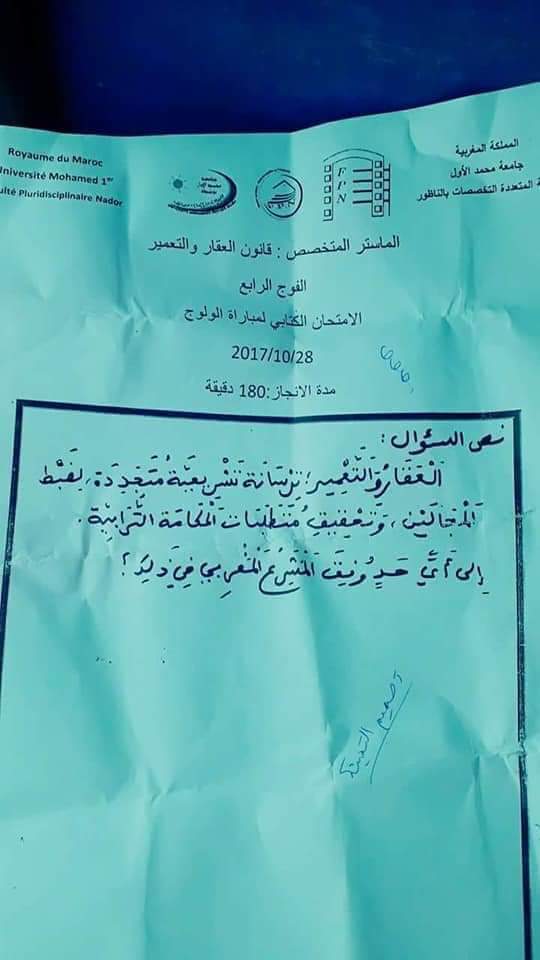 Royaume du Maroc
Université Mohamed 1er
Pluridisciplinaire Nador
المملكة المغربية
جامعة محمد الأول
المتعددة التخصصات بالناظور
F
P
N
الماستر المتخصص : قانون العقار والتعمير
الفوج الرابع
الامتحان الكتابي لمباراة الولوج
2017/10/28
مدة الانجاز:180 دقيقة
نص السؤال :
العقار والتعمير؛ ترسانة تشريعية متجددة، لضبط
المجالين، وتحقيق متطلبات الحكامة الترابية.
إلى أي حد وفق المشرع المغربي في ذلك ؟